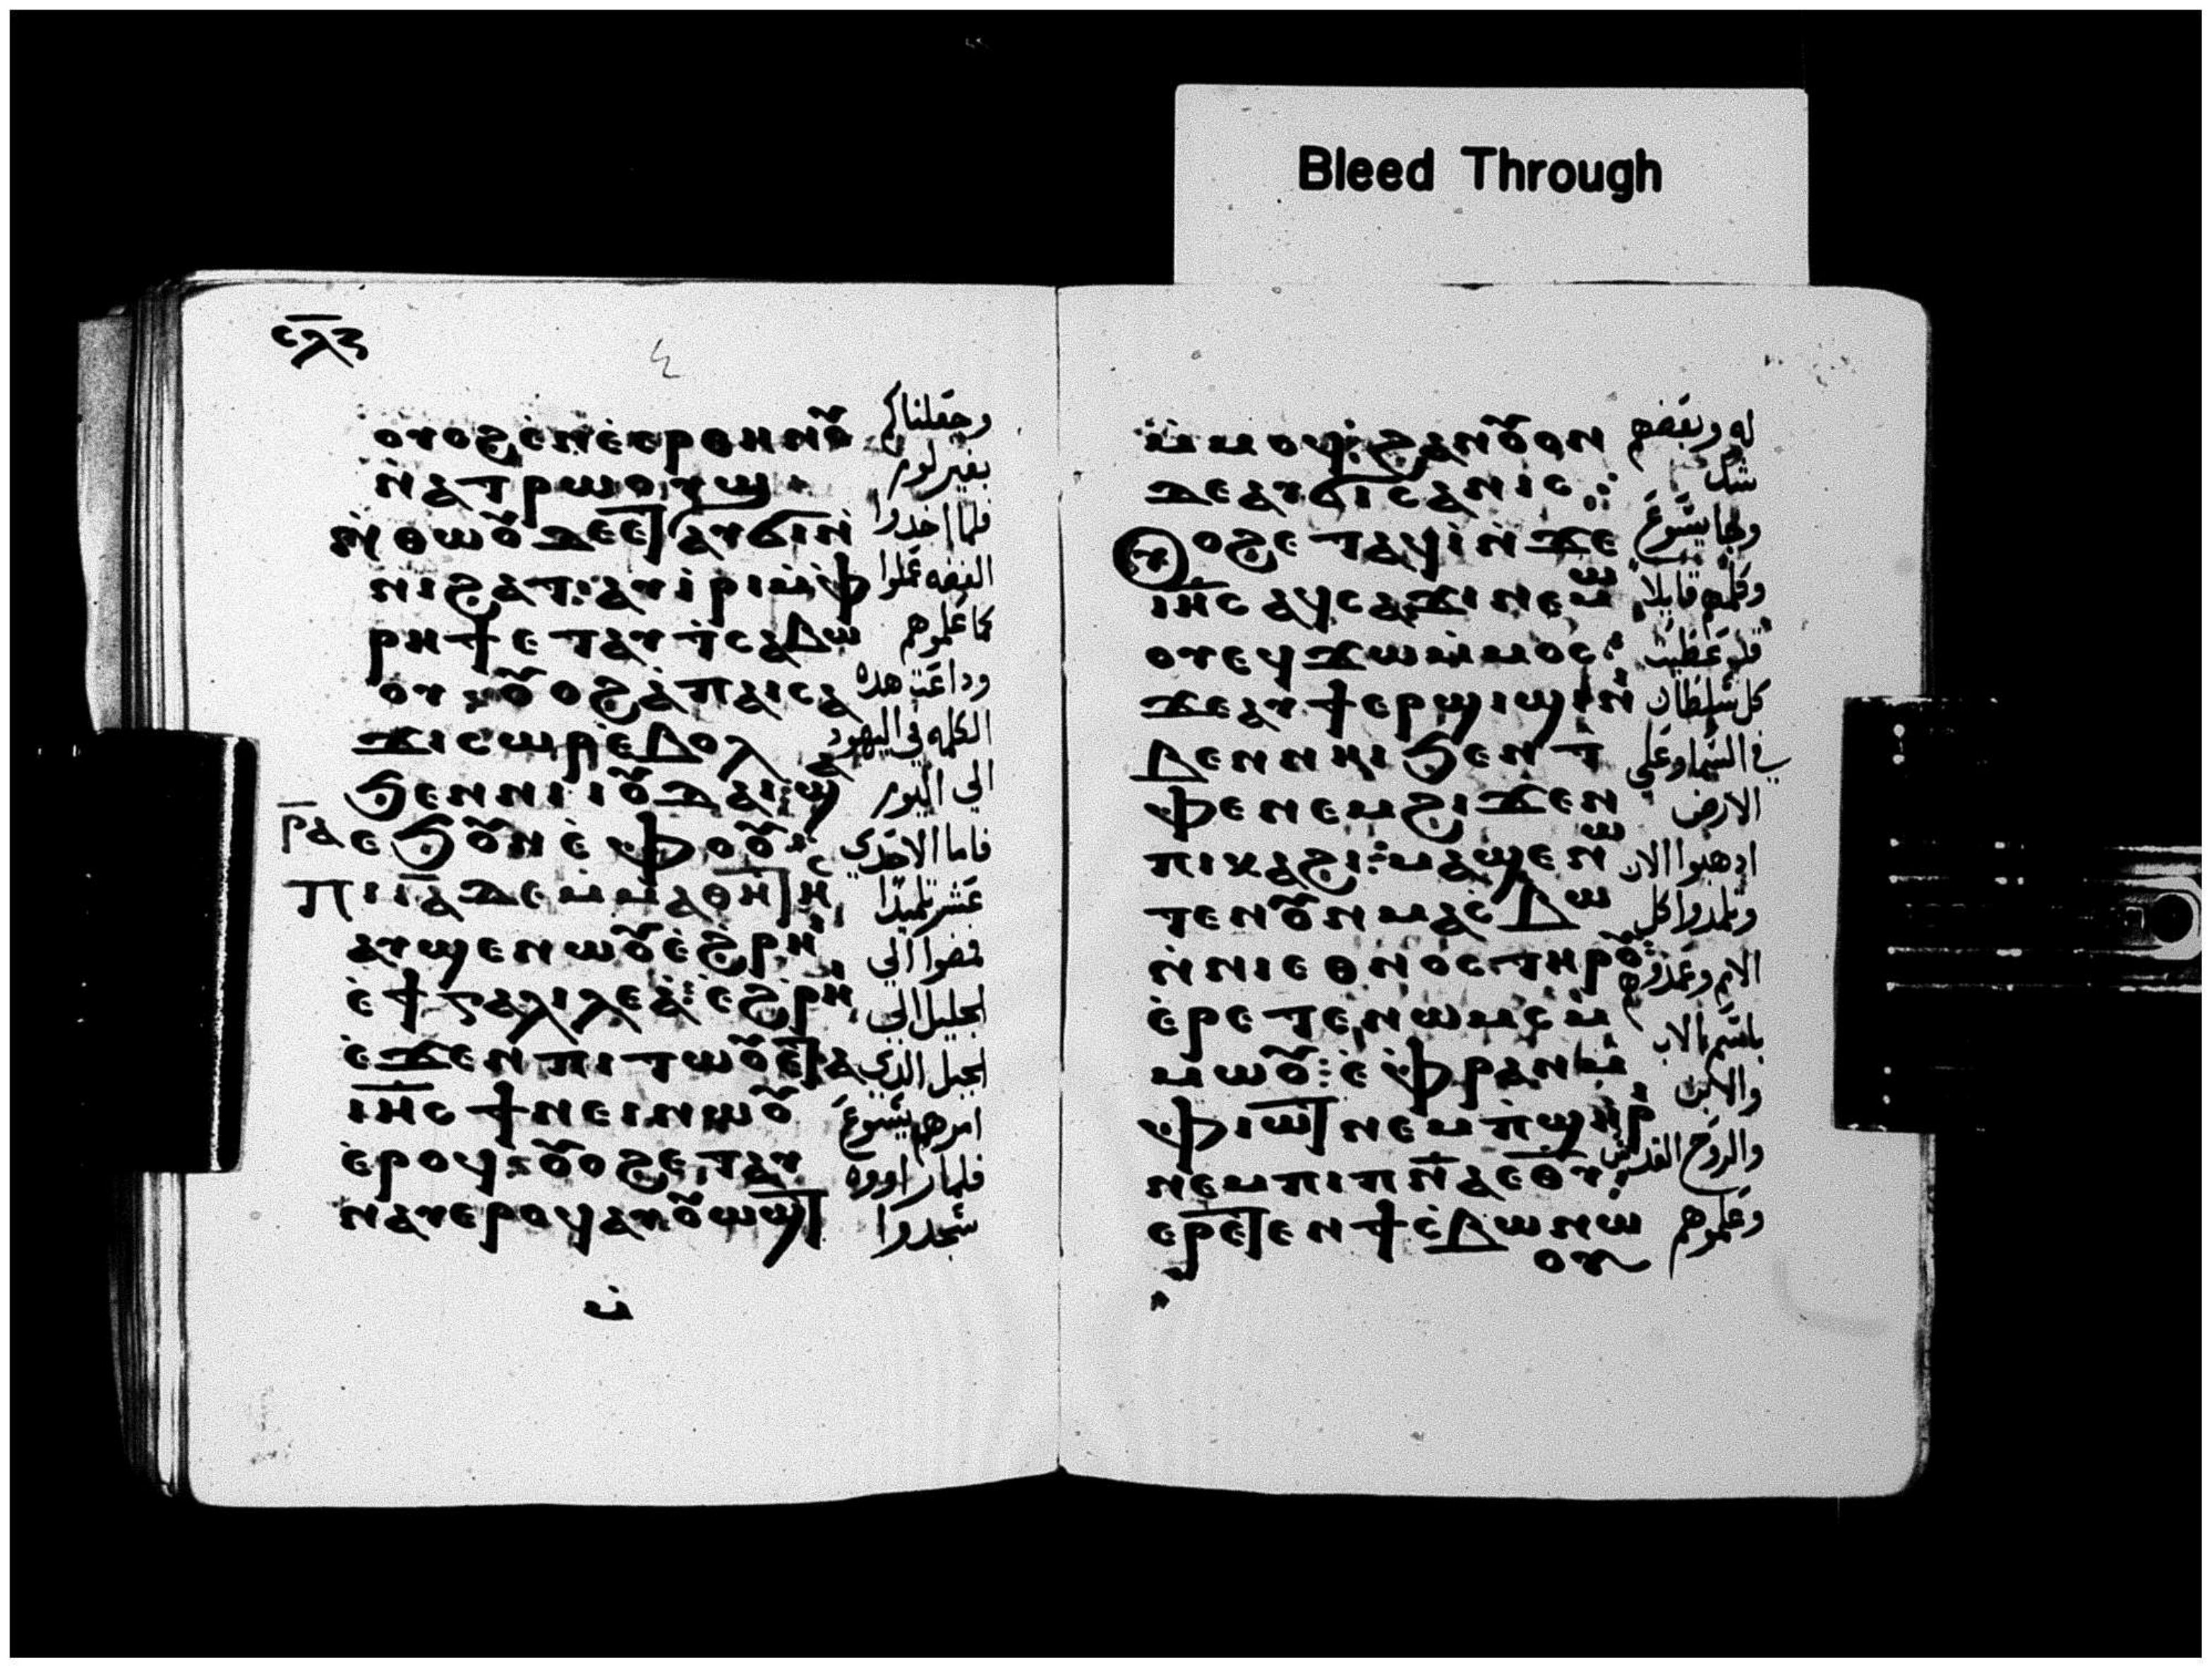 Bleed Through
ⲥⲗⲍ
ⲟⲩⲟϩ ⲉⲛⲉⲉⲣⲑⲏⲛⲟ⩌ وجعلناكم
ⲛⲁⲧⲣⲱⲟⲩϣ بغير لور
ⲛⲑⲱⲟⲩ ⲇⲉ ⲉⲧⲁⲩϭⲓ ⲛ فلما اخدوا
ⲛⲓϩⲁⲧ ⲁⲩⲓⲣⲓ ⲙⲫ الفضه عملوا
ⲣⲏϯ ⲉⲧⲁⲩⲧⲥⲁⲃⲱ كما علموهم
ⲟⲩ ⲟⲩⲟϩ ⲁⲡⲁⲓⲥⲁ وداعت هده
ϫⲓ ⲥⲱⲣ ⲉⲃⲟⲗ الكلمه في اليهود
ϧⲉⲛ ⲛⲓⲓⲟⲩⲇⲁⲓ ϣⲁ الي اليور
ⲣⲁ ⲉϧⲟⲩⲛ ⲉⲫⲟⲟⲩ فاما الاحدي
ⲡⲓⲓⲁ ⲇⲉ ⲙⲙⲁⲑⲏⲧⲏⲥ عشر تلميدا
ⲁⲩϣⲉⲛⲱⲟⲩ ⲉϩⲣⲏⲓ فمضوا الي
ⲉϯⲅⲁⲗⲓⲗⲉⲁ ⲉϩⲣⲏⲓ الجليل الي
ⲉϫⲉⲛ ⲡⲓⲧⲱⲟⲩ ⲉⲧⲁ الجبل الدي
ⲓⲏⲥ ϯⲛⲉⲓⲛⲱⲟⲩ امرهم يسوع
ⲉⲣⲟϥ ⲟⲩⲟϩ ⲉⲧⲁⲩ فلما راووه
ⲛⲁⲩ ⲉⲣⲟϥ ⲁⲩⲟⲩⲱϣⲧ سجدوا
ⲙ
ⲙⲙⲟϥ ϩⲁⲛⲟⲩⲟⲛ له وبعضهم
ⲇⲉ ⲁⲩϭⲓⲥⲁⲛⲓⲥ شك
ⲟⲩⲟϩ ⲉⲧⲁϥⲓ ⲛϫⲉ وجا يسوع
ⲓⲏⲥ ⲁϥⲥⲁϫⲓ ⲛⲉⲙⲱ وكلمهم قايلا
ⲟⲩ ⲉϥϫⲱ ⲙⲙⲟⲥ قد عطيت
ϫⲉ ⲁⲩϯ ⲉⲣϣⲓϣⲓ ⲛⲓ كل سلطان
ⲃⲉⲛ ⲛⲏⲓ ϧⲉⲛ ⲧ في السما وعلي
ⲫⲉ ⲛⲉⲙ ϩⲓϫⲉⲛ الارض
ⲡⲓⲕⲁϩⲓ ⲙⲁϣⲉⲛⲱ ادهبوا الان
ⲧⲉⲛ ⲟⲩⲛ ⲙⲁⲥⲃⲱ وتلمدوا كل
ⲛⲛⲓⲉⲑⲛⲟⲥ ⲧⲏⲣⲟⲩ الامم وعمدوهم
ⲉⲣⲉⲧⲉⲛⲱⲙⲥ ⲙ باسم الاب
ⲙⲱⲟⲩ ⲉⲫⲣⲁⲛ ⲙ والابن
ⲫⲓⲱⲧ ⲛⲉⲙ ⲡϣⲏⲣⲓ والروح القدس
ⲛⲉⲙ ⲡⲓⲡⲛⲁ ⲉⲑⲩ
ⲉⲣⲉⲧⲉⲛϯⲥⲃⲱ ⲛⲱ وعلموهم
ⲟⲩ